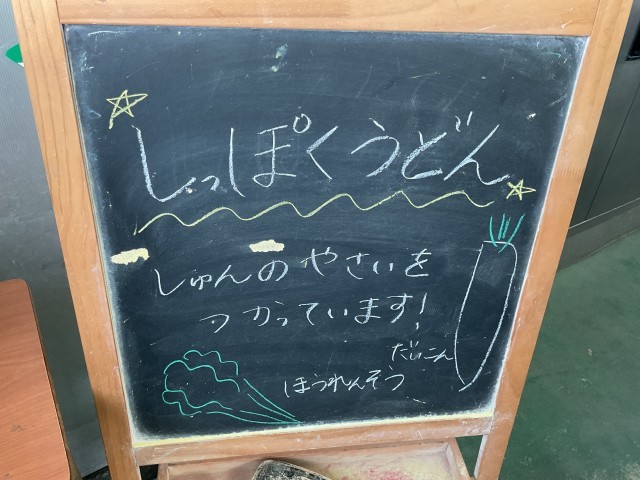 しっぽくうどん
しゅんのやさいを
つかっています!
だいこん
ほうれんそう